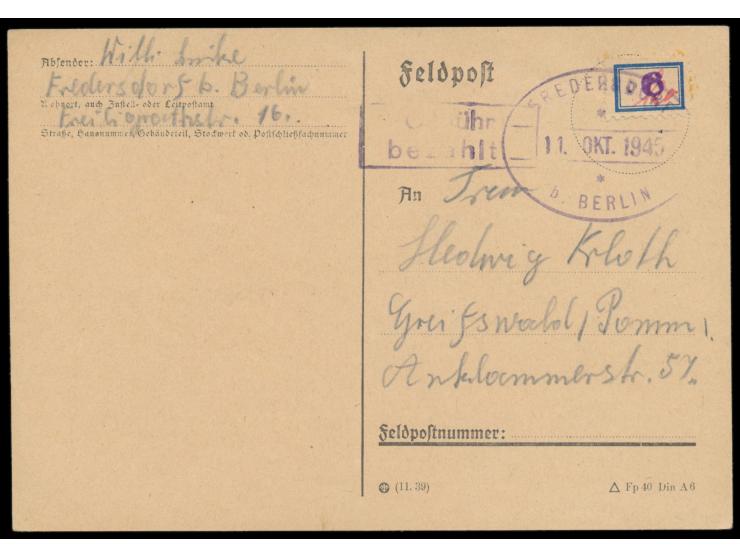 Absender: Willi
Fredersdorf b. Berlin
Wohnort, auch Zustell- oder Leitpostamt
Freiligrathstr. 16.
Straße, Hausnummer, Gebäudeteil, Stockwerk od. Postschließfachnummer
Feldpost
6
Gebühr
bezahlt
FREDERSDORF
11. OKT. 1945
b. BERLIN
An Frau
Hedwig Kloth
Greifswald / Pomm.
Anklammerstr. 57.
Feldpostnummer:
(11. 39)
Fp 40 Din A 6